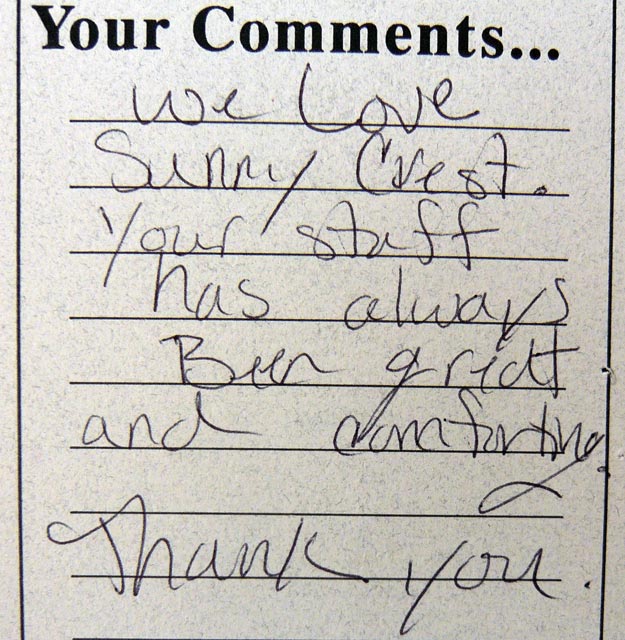 Your Comments...
We Love
Sunny Crest.
Your staff
has always
Been great
and comforting
Thank you.